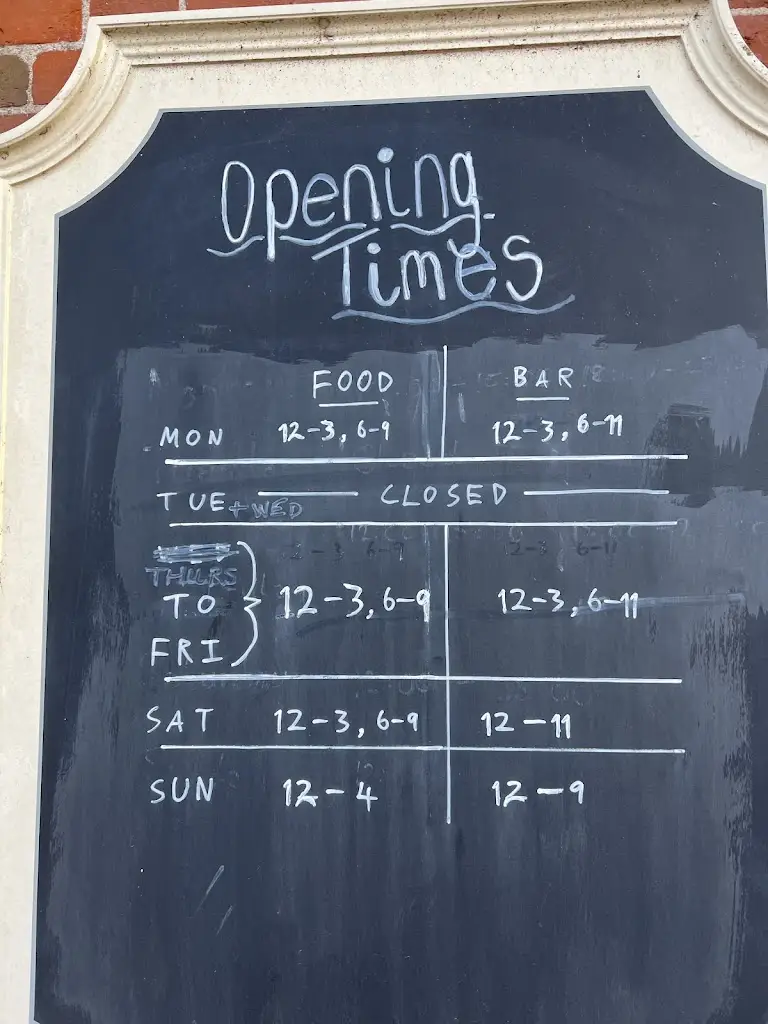 Opening
Times
FOOD BAR
MON 12-3, 6-9 12-3, 6-11
TUE + WED CLOSED
THURS
TO 12-3, 6-9 12-3, 6-11
FRI
SAT 12-3, 6-9 12-11
SUN 12-4 12-9